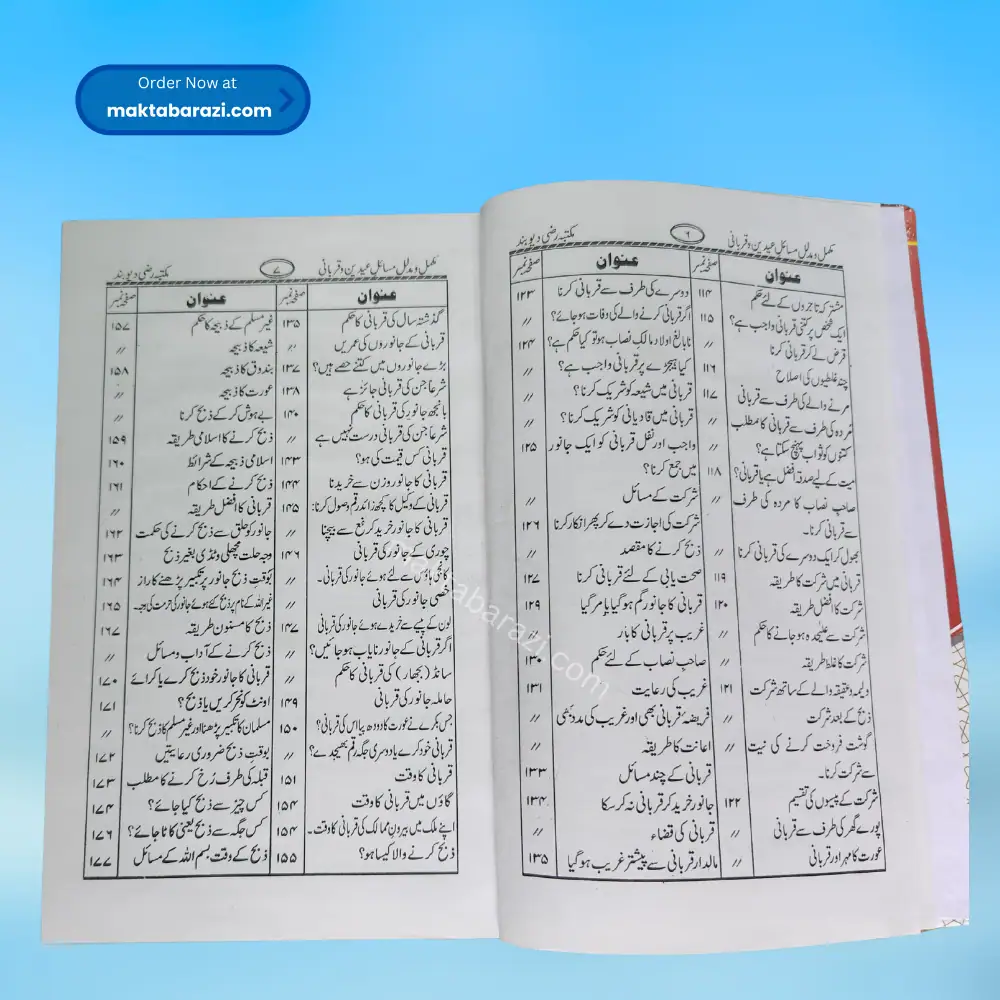 Order Now at
maktabarazi.com
مکمل و مدلل مسائل عیدین و قربانی
۶
مکتبہ رضی دیوبند
عنوان
صفحہ نمبر
مشترکہ تاجروں کے لئے حکم ۱۱۴
ایک شخص پر کتنی قربانی واجب ہے؟ ۱۱۵
قرض لے کر قربانی کرنا
چند غلطیوں کی اصلاح ۱۱۶
مرنے والے کی طرف سے قربانی ۱۱۷
مُردہ کی طرف سے قربانی کا مطلب
کتنوں کو ثواب پہنچ سکتا ہے؟
میت کے لیے صدقہ افضل ہے یا قربانی؟ ۱۱۸
صاحبِ نصاب کا مردہ کی طرف 〃
سے قربانی کرنا۔
بھول کر ایک دوسرے کی قربانی کرنا 〃
قربانی میں شرکت کا طریقہ ۱۱۹
شرکت کا افضل طریقہ ۱۲۰
شرکت سے علیٰحدہ ہو جانے کا حکم 〃
شرکت کا غلط طریقہ 〃
ولیمہ و عقیقہ والے کے ساتھ شرکت ۱۲۱
ذبح کے بعد شرکت 〃
گوشت فروخت کرنے کی نیت 〃
سے شرکت کرنا۔
شرکت کے پیسوں کی تقسیم ۱۲۲
پورے گھر کی طرف سے قربانی 〃
عورت کا مہر اور قربانی 〃
عنوان
صفحہ نمبر
دوسرے کی طرف سے قربانی کرنا ۱۲۳
اگر قربانی کرنے والے کی وفات ہو جائے؟ 〃
نابالغ اولاد مالکِ نصاب ہو تو کیا حکم ہے؟ ۱۲۴
کیا ہیجڑے پر قربانی واجب ہے؟ 〃
قربانی میں شیعہ کو شریک کرنا؟ 〃
قربانی میں قادیانی کو شریک کرنا؟ 〃
واجب اور نفل قربانی کو ایک جانور ۱۲۵
میں جمع کرنا؟
شرکت کے مسائل 〃
شرکت کی اجازت دے کر پھر انکار کرنا ۱۲۶
ذبح کرنے کا مقصد 〃
صحت یابی کے لئے قربانی کرنا ۱۲۷
قربانی کا جانور گم ہوگیا یا مر گیا ۱۲۹
غریب پر قربانی کا بار 〃
صاحبِ نصاب کے لئے حکم ۱۳۰
غریب کی رعایت ۱۳۱
فریضۂ قربانی بھی اور غریب کی مدد بھی 〃
اعانت کا طریقہ 〃
قربانی کے چند مسائل ۱۳۳
جانور خرید کر قربانی نہ کر سکا ۱۳۴
قربانی کی قضاء 〃
مالدار قربانی سے پیشتر غریب ہوگیا ۱۳۵
مکمل و مدلل مسائل عیدین و قربانی
۷
مکتبہ رضی دیوبند
عنوان
صفحہ نمبر
گذشتہ سال کی قربانی کا حکم ۱۳۵
قربانی کے جانوروں کی عمریں 〃
بڑے جانوروں میں کتنے حصے ہیں؟ ۱۳۷
شرعاً جن کی قربانی جائز ہے ۱۳۸
بانجھ جانور کی قربانی کا حکم ۱۴۰
شرعاً جن کی قربانی درست نہیں ہے 〃
قربانی کس قیمت کی ہو؟ ۱۴۳
قربانی کا جانور وزن سے خریدنا ۱۴۴
قربانی کے وکیل کا کچھ زائد رقم وصول کرنا: ۱۴۵
قربانی کا جانور خرید کر نفع سے بیچنا 〃
چوری کے جانور کی قربانی ۱۴۶
کانجی ہاؤس سے لئے ہوئے جانور کی قربانی۔ 〃
خصی جانور کی قربانی 〃
لون کے پیسے سے خریدے ہوئے جانور کی قربانی ۱۴۷
اگر قربانی کے جانور نایاب ہو جائیں؟ 〃
سانڈ (بجھار) کی قربانی کا حکم 〃
حاملہ جانور کی قربانی ۱۴۹
جس بکرے نے عورت کا دودھ پیا اس کی قربانی؟ ۱۵۰
قربانی خود کرے یا دوسری جگہ رقم بھیج دے؟ 〃
قربانی کا وقت ۱۵۱
گاؤں میں قربانی کا وقت ۱۵۴
اپنے ملک میں بیرونِ ممالک کی قربانی کا وقت۔ ۱۵۴
ذبح کرنے والا کیسا ہو؟ ۱۵۵
عنوان
صفحہ نمبر
غیر مسلم کے ذبیحہ کا حکم ۱۵۷
شیعہ کا ذبیحہ 〃
بندوق کا ذبیحہ ۱۵۸
عورت کا ذبیحہ 〃
بے ہوش کر کے ذبح کرنا 〃
ذبح کرنے کا اسلامی طریقہ ۱۵۹
اسلامی ذبیحہ کے شرائط ۱۶۰
ذبح کرنے کے احکام ۱۶۱
قربانی کا افضل طریقہ 〃
جانور کو حلق سے ذبح کرنے کی حکمت ۱۶۲
وجہ حلت مچھلی و ٹڈی بغیر ذبح ۱۶۳
بوقتِ ذبح جانور پر تکبیر پڑھنے کا راز ۱۶۴
غیر اللہ کے نام پر ذبح کئے ہوئے جانور کی حرمت کی وجہ۔ ۱۶۵
ذبح کا مسنون طریقہ ۱۶۷
ذبح کرنے کے آداب و مسائل 〃
قربانی کا جانور خود ذبح کرے یا کرائے ۱۷۰
اونٹ کو نحر کریں یا ذبح؟ ۱۷۱
مسلمان کا تکبیر پڑھنا اور غیر مسلم کا ذبح کرنا؟ 〃
بوقتِ ذبح ضروری رعایتیں ۱۷۲
قبلہ کی طرف رُخ کرنے کا مطلب ۱۷۳
کس چیز سے ذبح کیا جائے؟ ۱۷۴
کس جگہ سے ذبح یعنی کاٹا جائے؟ ۱۷۶
ذبح کے وقت بسم اللہ کے مسائل ۱۷۷
maktabarazi.com